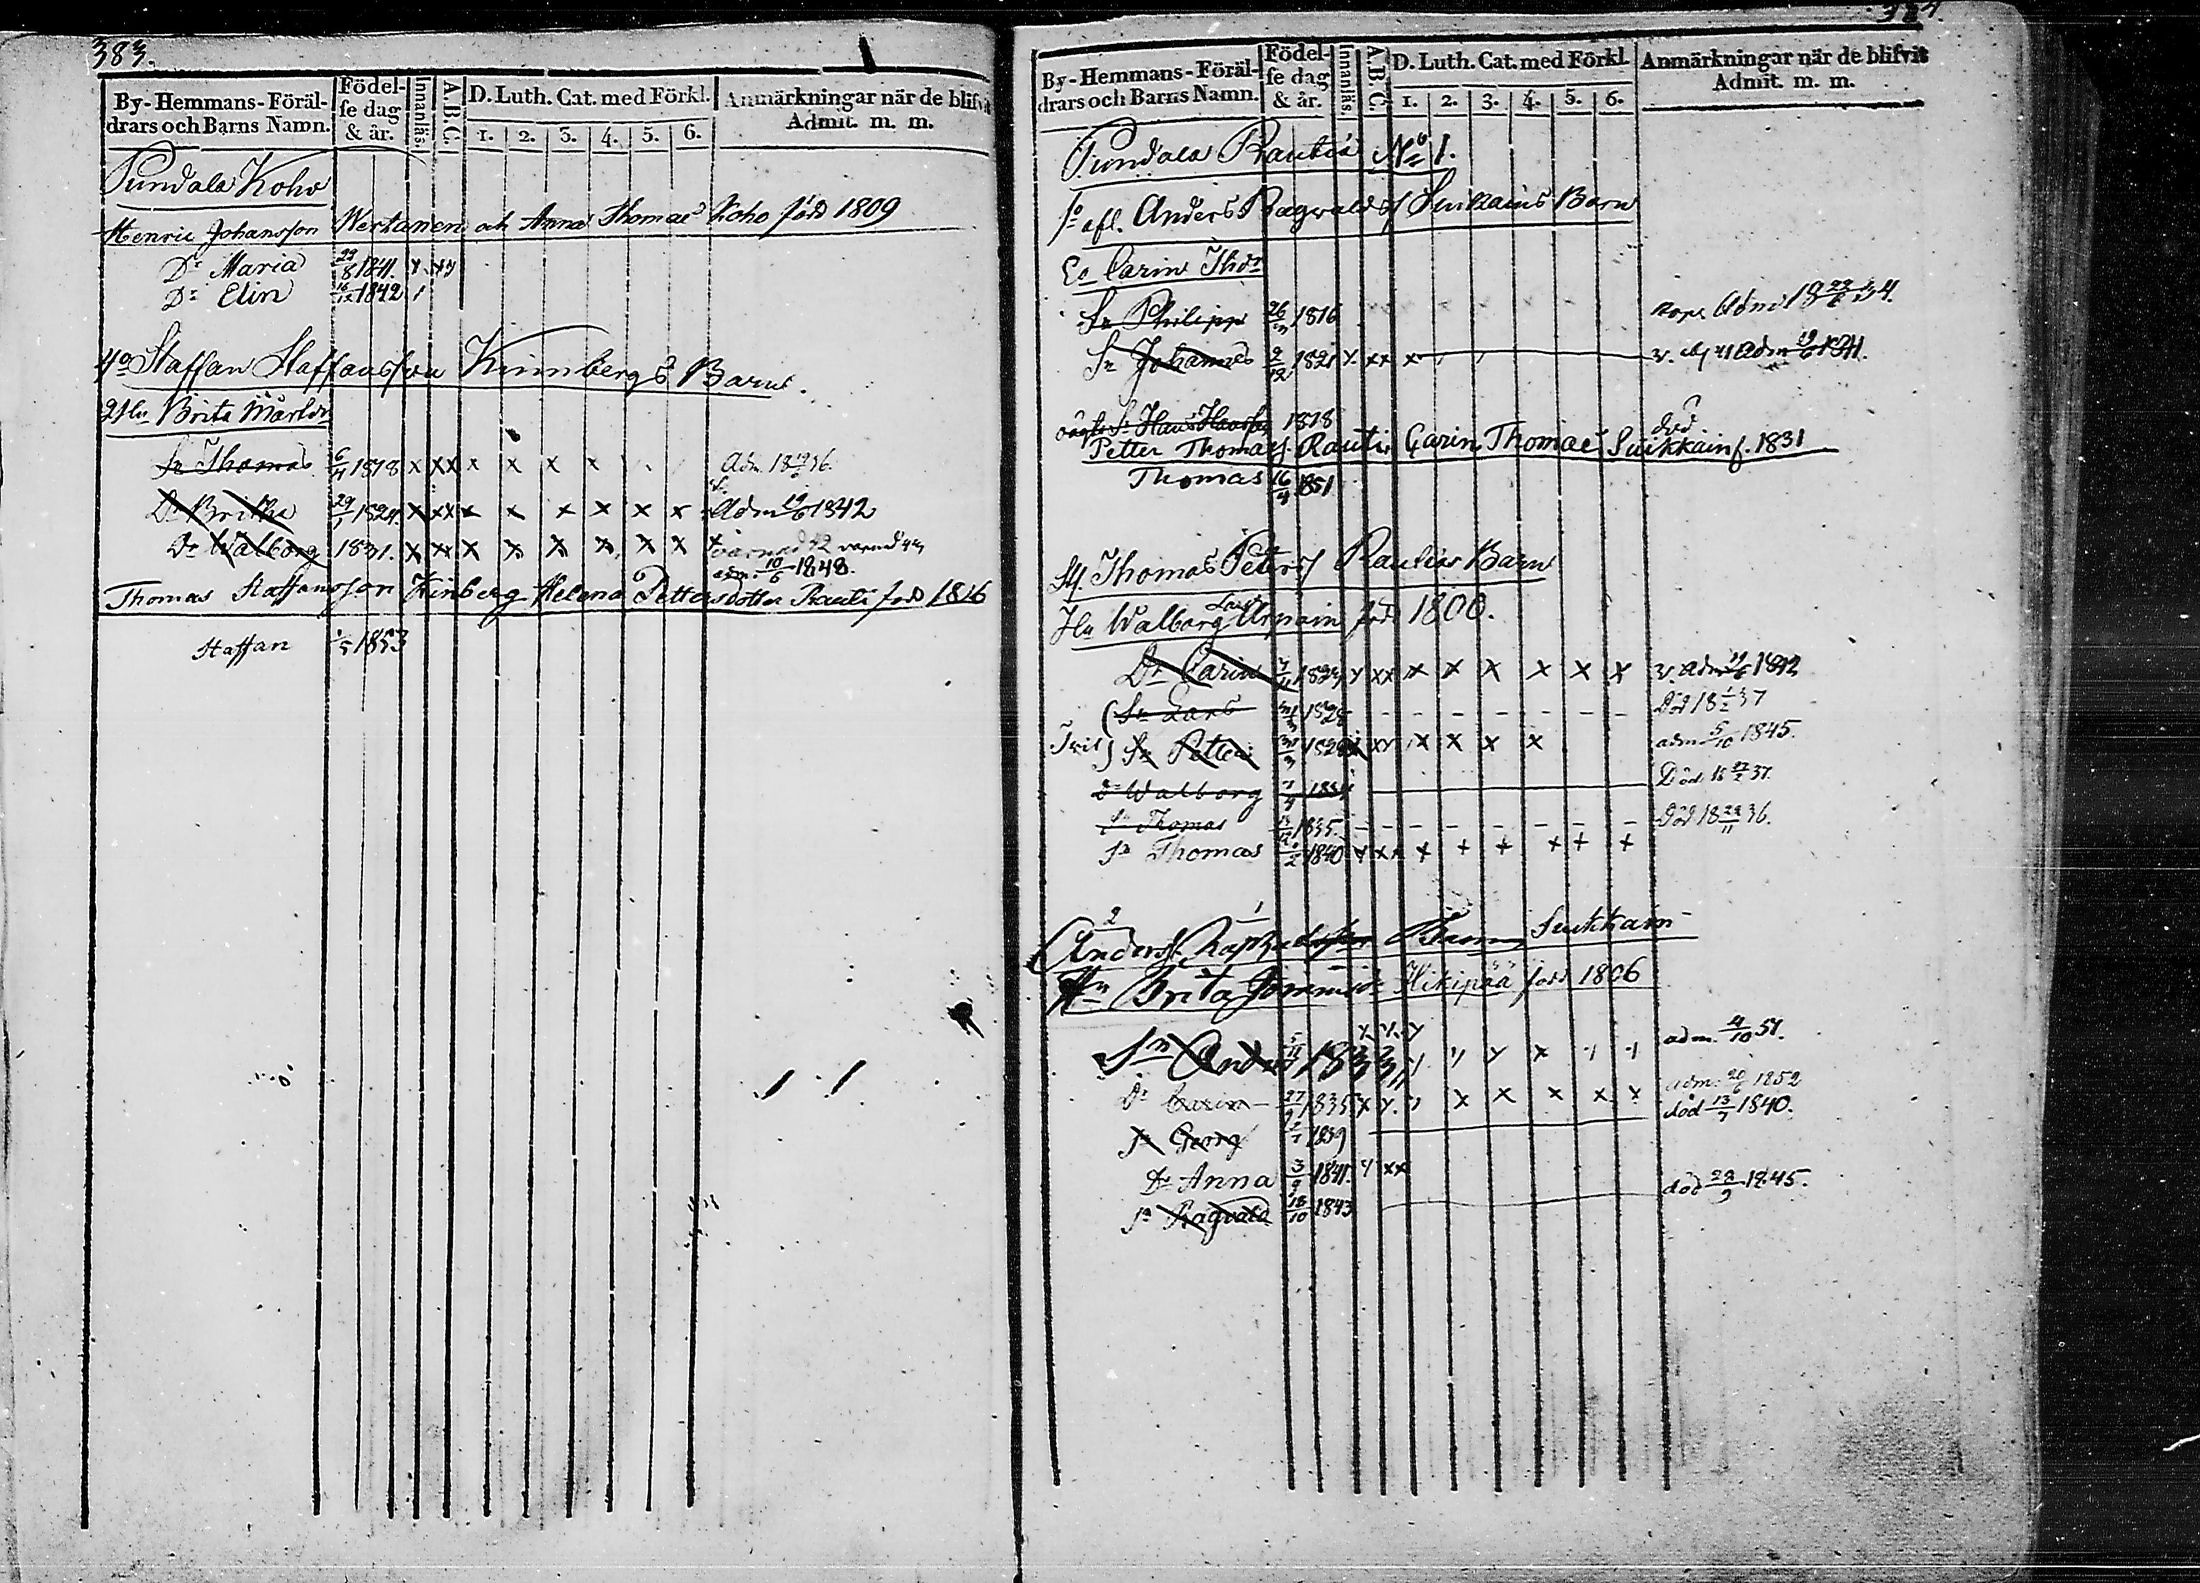 383.
By-Hemmans-Föräl-
drars och Barns Namn.
Födel-
se dag
& år.
Innanläs
A.B.C.
D. Luth. Cat. med Förkl.
1. 2. 3. 4. 5. 6.
Anmärkningar när de blifvit
Admit. m. m.
Pundala Koho
Henric Johansson Wertanen och Anna Thomaed Koho född 1809
Dr Maria 29/8 1841. x xx
Dr Elin 16/12 1842 1
4o Staffan Staffansson Kinnbergs Barn.
2 Hu Brita Mårtdr
Sn Thomas 6/11 1818 x xxx x x x x Adm. 18 36.
Dr Britha 29/1 1824. x xx x x x x x x Adm 19/6 1842
Dr Walborg 1831. x xx x x x x x x varnad 42 varnad 44
adm. 10/6 1848.
Thomas Staffansson Kinberg Helena Pettersdotter Rauti född 1816
Staffan 1/5 1853
384.
By-Hemmans-Föräl-
drars och Barns Namn.
Födel-
se dag
& år.
Innanläs.
A.B.C.
D. Luth. Cat. med Förkl.
1. 2. 3. 4. 5. 6.
Anmärkningar när de blifvit
Admit. m. m.
Pundala Rautia No 1.
1o afl. Anders Ragvaldss Suikkains Barn
Ea Carin Thdr
Sn Philipp 26/ 1816 Adm 18 34.
Sn Johannes 2/12 1821 x xx x Adm 19/6 1841.
Sn Hans Hansson 1818 död
Petter Thomass. Rauti Carin Thomaed Suikkain f. 1831
Thomas 16/4 1851
Thomas Peterss Rautias Barn
Hu Walborg Larsdr Urpain född 1800.
Dr Carin 4/11 1824 x xx x x x x x x v. Adm 19/6 1842
Sn Lars 1828 Död 18 1/2 37
Sn Petter 1828 xx x x x x adm 5/10 1845.
Dr Walborg 7/4 1831 Död 18 27/2 37.
Sn Thomas 1835. Död 18 29/11 36.
Sn Thomas 1840 x xx x x x x x x
2 1
Anders Suikkain
Hu Brita Hikipää född 1806
Sn Anders 5/11 1833 adm. 4/10 51.
Dr Carin 27/9 1835 x x x x x x x adm. 20/6 1852
Sn Georg 2/1 1839 död 13/7 1840.
Dr Anna 3/9 1841. x xx
Sn Ragvald 18/10 1843 död 28/9 1845.